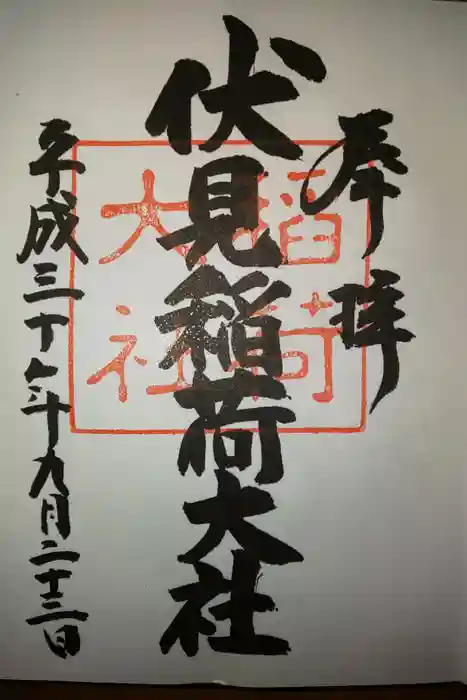 奉拝
伏見稲荷大社
平成三十年九月二十三日
稲荷
大社